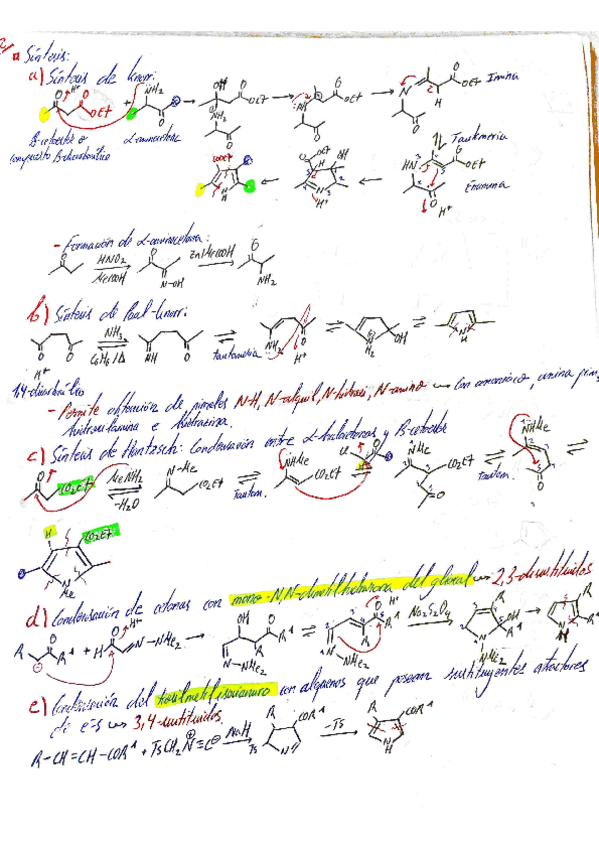 Síntesis:
a) Síntesis de Knorr:
OH
H+
NH2
OEt
OEt
OEt
OEt
Imina
β-cetoéster o
compuesto β-dicarbonílico
α-aminocetona
COOEt
OH
HN
OEt
Tautomería
Enamina
H+
- Formación de α-aminocetona:
HNO2
MeCOOH
N-OH
Zn/MeCOOH
NH2
b) Síntesis de Paal-Knorr:
NH3
C6H6/Δ
NH
tautomería
NH2
H+
OH
H+
1,4-dicarbonílico
- Permite obtención de pirroles N-H, N-alquil, N-hidroxi, N-amino
Con amoniaco, amina prim,
hidroxilamina e hidrazina.
c) Síntesis de Hantzsch: Condensación entre α-halocetonas y β-cetoéster
CO2Et
MeNH2
-H2O
N-Me
CO2Et
Tautom.
NHMe
CO2Et
NMe
CO2Et
Tautom.
NHMe
H
CO2Et
Me
d) Condensación de cetonas con mono-N,N-dimetilhidrazona del glioxal 2,3-disustituidos
R
R1
+
N-NMe2
OH
R1
R
N-NMe2
H+
R1
R
Na2S2O4
R1
OH
R
NMe2
R1
R
N
H
e) Condensación del tosilmetilisocianuro con alquenos que posean sustituyentes atractores
de e-s 3,4-sustituidos.
R-CH=CH-COR1 + TsCH2N≡C
NaH
R
COR1
Ts
N
-Ts
R
COR1
N
H